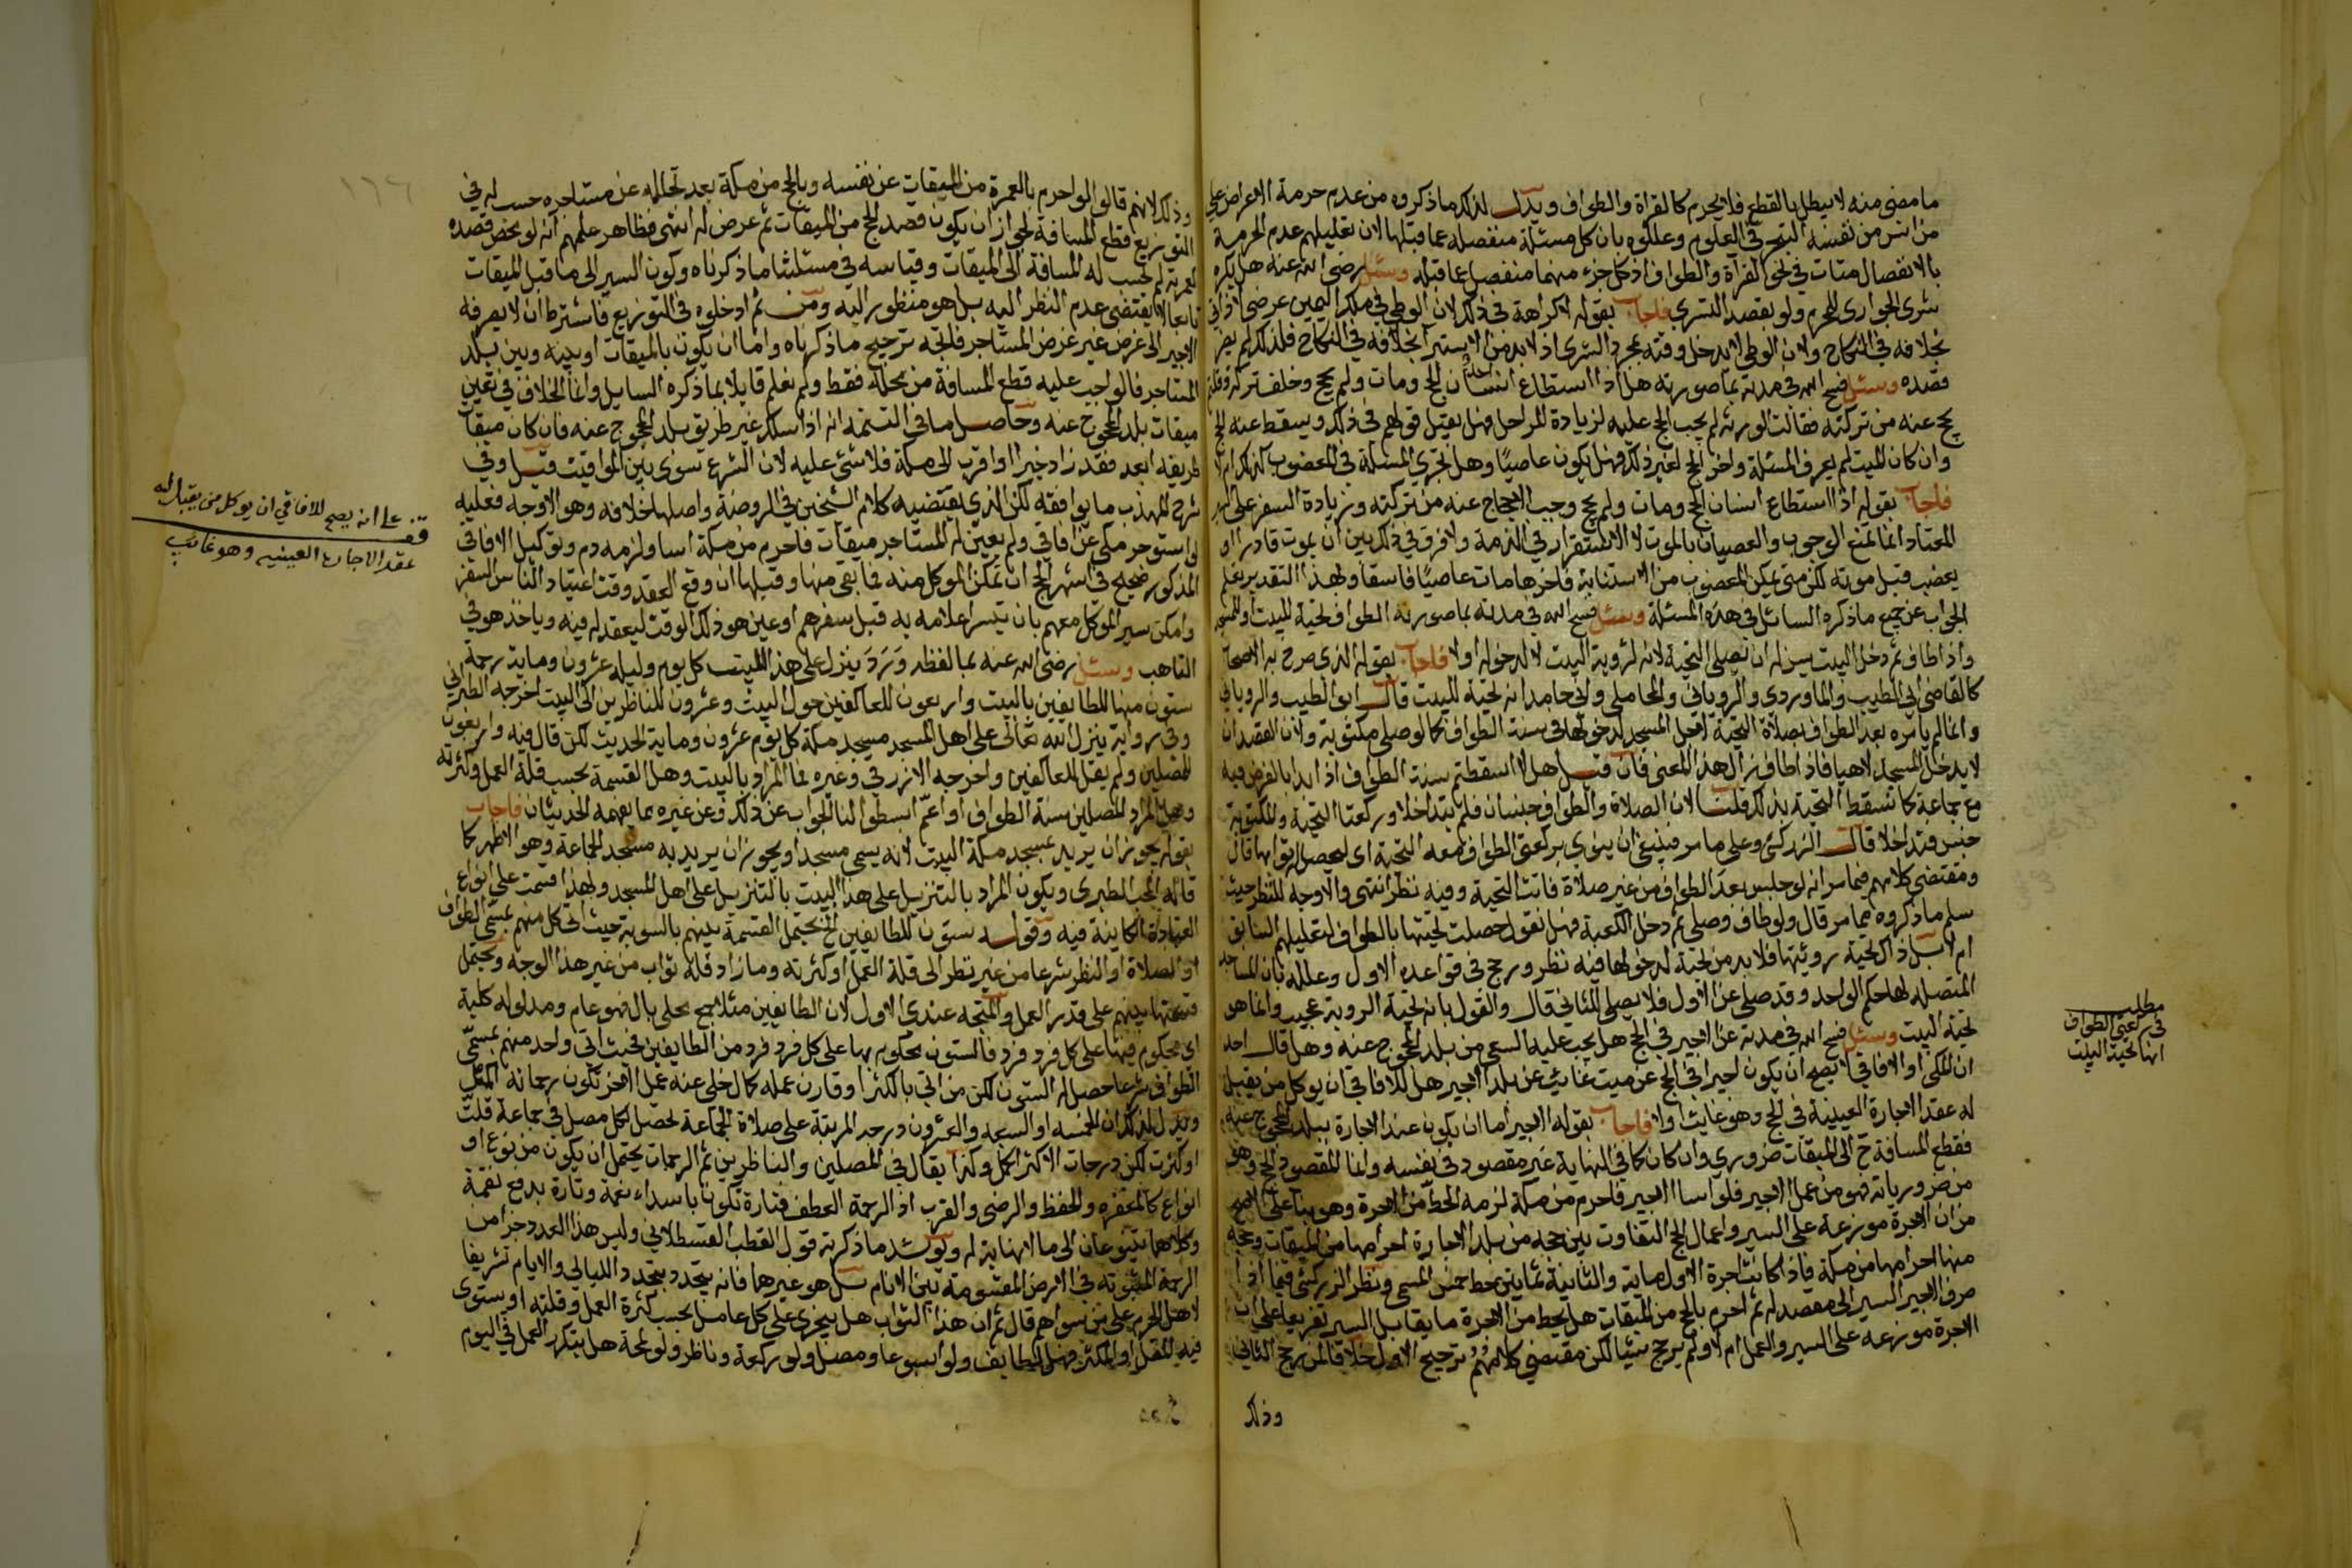 ما مضى منه لا يبطل بالقطع فلا يحرم كالقراة والطواف ويدل لذلك ما ذكروه من عدم حرمة الاعراض على
من انس من نفسه التبحر في العلوم وعللوه بان كل مسئلة منفصلة عما قبلها لان تعليلهم عدم الحرمة
بالانفصال متات في نحو القراة والطواف اذ كل جزء منهما منفصل عما قبله وسئل رضى الله عنه هل يكره
شرى الجوارى للمحرم ولو بقصد التسري فاجاب بقوله لا كراهة في ذلك لان الوطي في ملك اليمين عرضى لا ذاتي
بخلافه في النكاح ولان الوطي لا يدخل وقته بمجرد الشرى اذ لابد من الاستبرا بخلافه في النكاح فلذلك لم يضر
قصده وسئل فسح الله في مدته بما صورته هل اذا استطاع انسان الحج ومات ولم يحج وخلف تركة وقلتم
يحج عنه من تركته فقالت الورثة لم يجب الحج عليه لزيادة المراحل فهل يقبل قولهم في ذلك ويسقط عنه الحج
وان كان الميت لم يعرف المسئلة واخر الحج لغير ذلك فهل يكون عاصيًا وهل تجري المسئلة في المعضوب كذلك ام لا
فاجاب بقوله اذا استطاع انسان الحج ومات ولم يحج وجب الاحجاج عنه من تركته وزيادة السفر على السير
المعتاد انما تمنع الوجوب والعصيان بالموت لا الاستقرار في الذمة ولا فرق في ذلك بين ان يموت قادرا او
يعضب قبل موته لكن متى تمكن المعضوب من الاستنابة فاخرها مات عاصيًا فاسقا وبهذا التقدير يعلم
الجواب عن جميع ما ذكره السائل في هذه المسئلة وسئل فسح الله في مدته بما صورته الطواف تحية للبيت او للمسجد
واذا طاف ثم دخل البيت يسن له ان يصلي التحية لانه لرؤية البيت لا لدخوله اولا فاجاب بقوله الذى صرح به الاصحاب
كالقاضي ابي الطيب والماوردي والروياني والمحاملي وابي حامد انه تحية للبيت قال ابو الطيب والروياني
وانما لم يامره بعد الطواف بصلاة التحية لاجل المسجد لدخولها في سنة الطواف كما لو صلى مكتوبة ولان القصد ان
لا يدخل المسجد لاهيا فاذا طاف زال هذا المعنى فان قيل هلا اسقطتم سنة الطواف اذا بدا بالفرض فيه
مع جماعة كما تسقط التحية بذلك قلنا لان الصلاة والطواف جنسان فلم يتداخلا وركعتا التحية والمكتوبة
جنس فتداخلا قال الزركشي وعلى ما مر فينبغي ان ينوي بركعتي الطواف معه التحية اى ليحصل ثوابها قال
ومقتضى كلامهم فيما مر انه لو جلس بعد الطواف من غير صلاة فاتت التحية وفيه نظر انتهى والاوجه للنظر حيث
سلم ما ذكروه مما مر قال ولو طاف وصلى ثم دخل الكعبة فهل نقول حصلت تحيتها بالطواف لتعليلهم السابق
ام لا بل ذاك تحية رويتها فلا بد من تحية لدخولها فيه نظر ورجح في قواعده الاول وعلله بان المساجد
المتصلة لها حكم الواحد وقد صلى عن الاول فلا يصلي للثاني قال والقول بانه تحية الروية عجيب وانما هو
تحية البيت وسئل فسح الله في مدته عن الاجير في الحج هل يجب عليه السعي من بلد المحجوج عنه وهل قال احد
ان المكي او الافاقي لا يصح ان يكون اجيرا في الحج عن ميت غائب عن بلد الاجير هل للافاقي ان يوكل من يقبل
له عقد الاجارة العينية في الحج وهو غائب اولا فاجاب بقوله الاجير اما ان يكون عند الاجارة ببلد المحجوج عنه
فقطع المسافة ح الى الميقات ضروري وان كان كما في النهاية غير مقصود في نفسه وانما المقصود الحج وهو
من ضرورياته فهو من عمل الاجير فلو اسا الاجير فاحرم من مكة لزمه الحط من الاجرة وهو بنا على الاصح
من ان الاجرة موزعة على السير واعمال الحج التفاوت بين حجه من بلد الاجارة احرامها من الميقات وحجة
منها احرامها من مكة فاذا كانت اجرة الاولى ماية والثانية ثمانين يحط خمس المسمى ونظر الزركشي فيما اذا
صرف الاجير المسير الى مقصد له ثم احرم بالحج من الميقات هل يحط من الاجرة ما يقابل السير تفريعا على ان
الاجرة موزعة على السير والعمل ام لا ولم يرجح شيئا لكن مقتضى كلامهم ترجيح الاول خلافا لمن رجح الثاني
وذلك
مطلب
في ركعتي الطواف
انها تحية البيت
١٦٦
وذلك لانهم قالوا لو احرم بالعمرة من الميقات عن نفسه وبالحج من مكة بعد تحلله عن مستاجره حسب له في
التوزيع قطع المسافة لجواز ان يكون قصد الحج من الميقات ثم عرض له انتهى فظاهر كلامهم انه لو محض قصده
لعمرته لم تحسب له المسافة الى الميقات وقياسه في مسئلتنا ما ذكرناه وكون السير الى ما قبل الميقات
تابعا لا يقتضى عدم النظر اليه بل هو منظور اليه ومن ثم ادخلوه في التوزيع فاشترط ان لا يصرفه
الاجير الى غرض غير غرض المستاجر فاتجه ترجيح ما ذكرناه واما ان يكون بالميقات او بينه وبين بلد
المستاجر فالواجب عليه قطع المسافة من محله فقط ولم نعلم قايلا بما ذكره السايل وانما الخلاف في تعين
ميقات بلد المحجوج عنه وحاصل ما في التتمة انه اذا سلك غير طريق بلد المحجوج عنه فان كان ميقات
طريقه ابعد فقد زاد خيرا او اقرب الى مكة فلا شئ عليه لان الشرع سوى بين المواقيت قيل وفي
شرح المهذب ما يوافقه لكن الذي يقتضيه كلام الشيخين في الروضة واصلها خلافه وهو الاوجه فعليه
لو استوجر مكي عن افاقي ولم يعين له المستاجر ميقات فاحرم من مكة اسا ولزمه دم وتوكيل الافاقي
المذكور صحيح في اشهر الحج ان تمكن الموكل منه فيما بقى منها وقبلها ان وقع العقد وقت اعتياد الناس السفر
وامكن سير الموكل معهم بان تيسر اعلامه به قبل سفرهم او عين هو ذلك الوقت ليعقد له فيه وياخذ هو في
التاهب وسئل رضى الله عنه بما لفظه وَرَدَ ينزل على هذا البيت كل يوم وليلة عشرون وماية رحمة
ستون منها للطايفين بالبيت واربعون للعاكفين حول البيت وعشرون للناظرين الى البيت اخرجه الطبراني
وفي رواية ينزل الله تعالى على اهل المسجد مسجد مكة كل يوم عشرون وماية الحديث لكن قال فيه واربعون
للمصلين ولم يقل للعاكفين واخرجه الازرقي وغيره فما المراد بالبيت وهل القسمة بحسب قلة العمل وكثرته
وهل المراد للمصلين سنة الطواف او اعمّ ابسطوا لنا الجواب عن ذلك وعن غيره مما يفهمه الحديثان فاجاب
بقوله يجوز ان يريد بمسجد مكة البيت لانه يسمى مسجدا ويجوز ان يريد به مسجد الجماعة وهو الاظهر كما
قاله المحب الطبري ويكون المراد بالتنزيل على هذا البيت بالتنزيل على اهل المسجد ولهذا قسمت على انواع
العبادة الكاينة فيه وقوله ستون للطايفين الخ يحتمل القسمة بينهم بالسوية حيث اتى كل منهم بمسمى الطواف
او الصلاة او النظر شرعا من غير نظر الى قلة العمل او كثرته وما زاد فله ثواب من غير هذا الوجه ويحتمل
قسمتها بينهم على قدر العمل والمتجه عندي الاول لان الطايفين مثلا جمع محلى بال فهو عام ومدلوله كلية
اى محكوم فيها على كل فرد فرد فالستون محكوم بها على كل فرد فرد من الطايفين فحيث اتى واحد منهم بمسمّى
الطواف شرعا حصل له الستون لكن من اتى باكثر او قارن عمله كمال خلى عنه عمل الاخر تكون رحماته اكمل
ويدل لذلك ان الخمسة او السبعة والعشرون درجة المرتبة على صلاة الجماعة تحصل لكل مصل في جماعة قلتّ
او كثرت لكن درجات الاكثر اكمل وكذا يقال في المصلين والناظرين ثم الرحمات يحتمل ان يكون من نوع او
انواع كالمغفرة والحفظ والرضى والقرب اذ الرحمة العطف فتارة تكون باسداء نعمة وتارة بدفع نقمة
وكلاهما يتنوعان الى ما لا نهاية له ويوشد ما ذكرته قول القطب القسطلاني وليس هذا العدد جزا من
الرحمة المبثوثة في الارض المقسومة بين الانام بل هو غيرها فانه يتجدد بتجدد الليالي والايام تشريفا
لاهل الحرم على من سواهم قال ثم ان هذا الثواب هل يتجزى على كل عامل بحسب كثرة العمل وقلته او يستوى
فيه المقل او المكثر فهل للطايف ولو اسبوعا ومصل ولو ركعة وناظر ولو لمحة هل بتكرر العمل في اليوم
قف على انه يصح للافاقي ان يوكل من يقبل له
عقد الاجارة العينيه وهو غائب